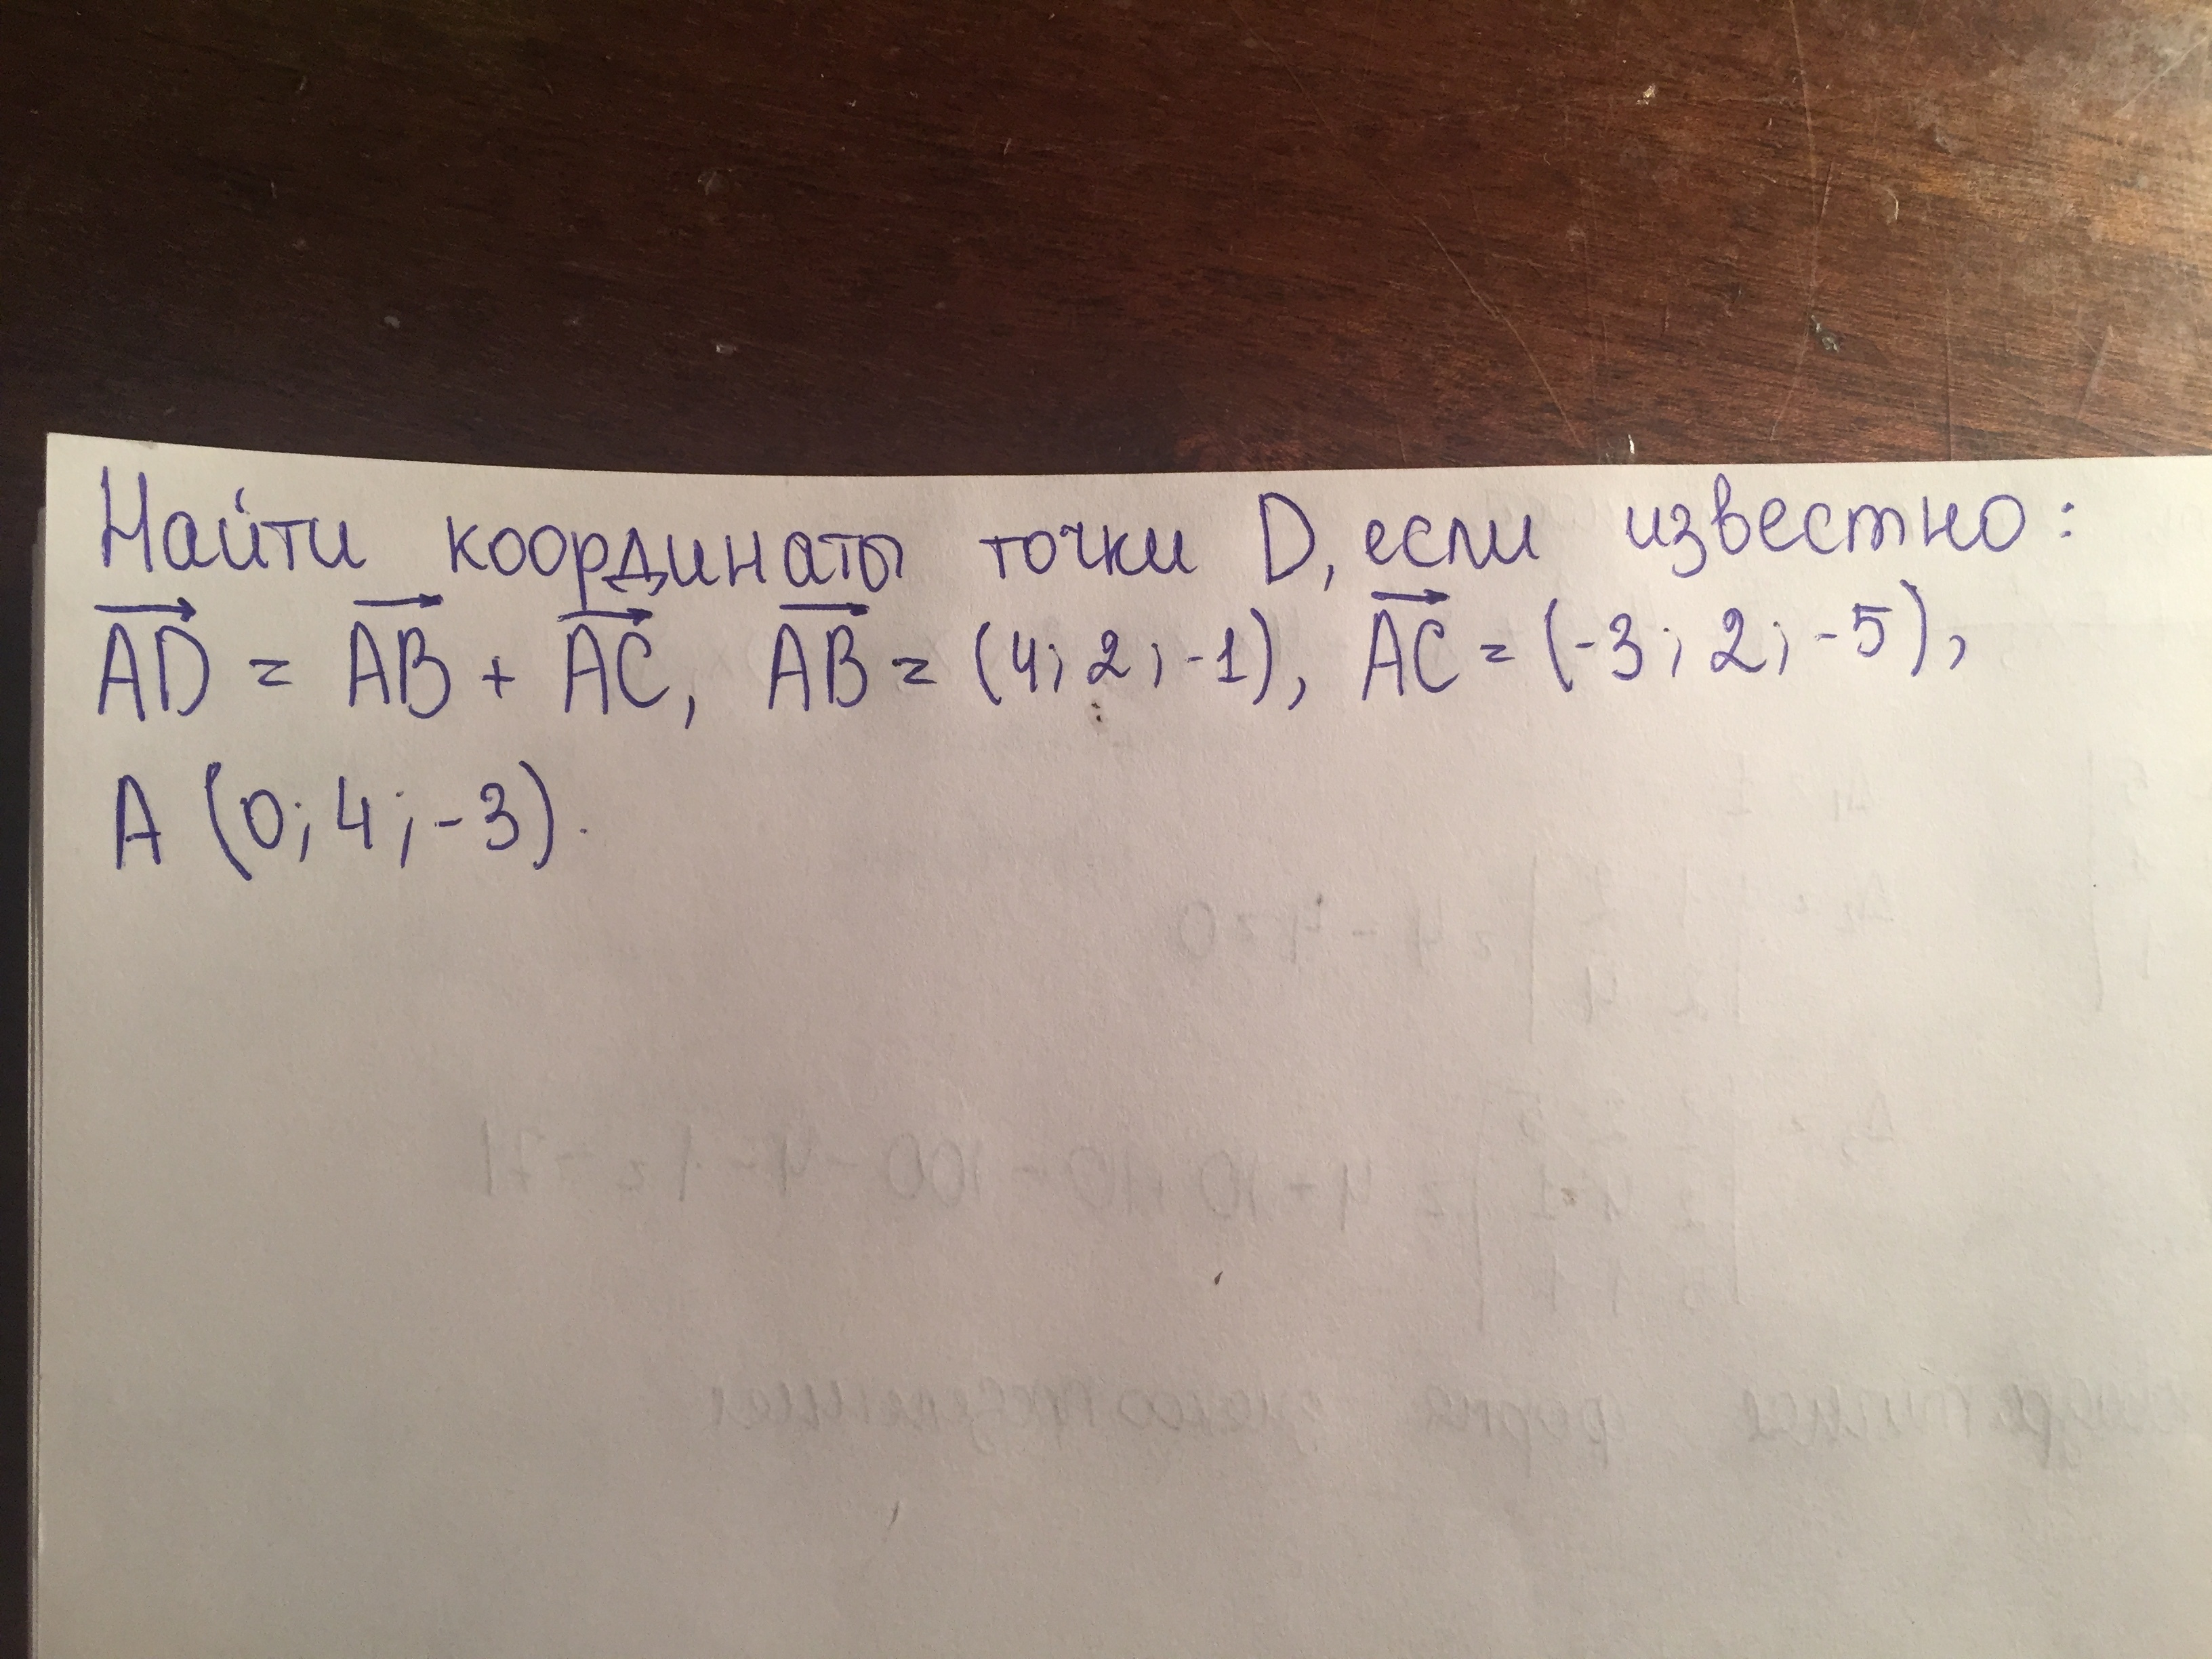 Найти координаты точки D, если известно:
AD = AB + AC, AB = (4; 2; -1), AC = (-3; 2; -5),
A (0; 4; -3).